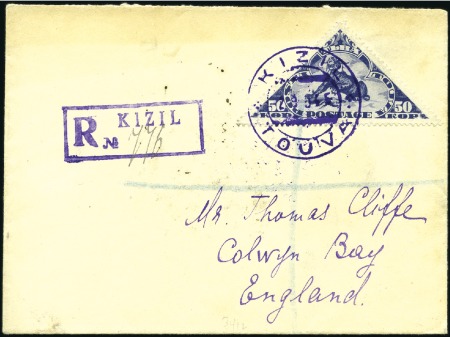 KIZIL
TOUVA
50 50
KOP. POSTAGE KOP.
R KIZIL
№
Mr. Thomas Cliffe
Colwyn Bay
England.